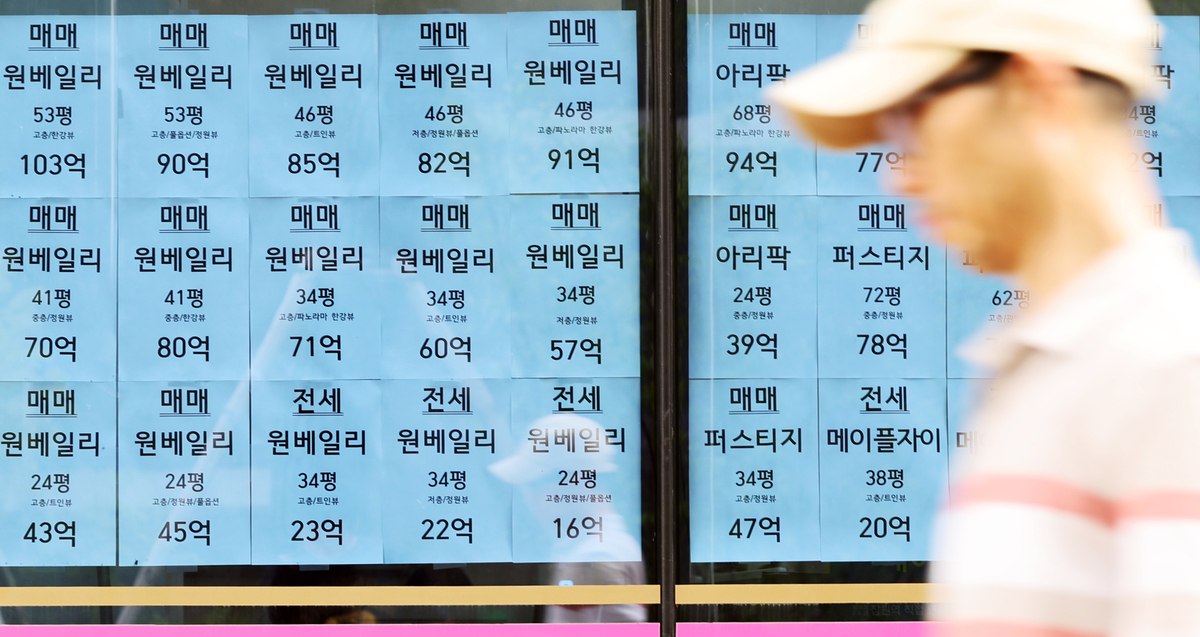 매매
원베일리
53평
고층/한강뷰
103억
매매
원베일리
53평
고층/풀옵션/정원뷰
90억
매매
원베일리
46평
고층/트인뷰
85억
매매
원베일리
46평
저층/정원뷰/풀옵션
82억
매매
원베일리
46평
고층/파노라마 한강뷰
91억
매매
아리팍
68평
고층/파노라마 한강뷰
94억
77억
매매
원베일리
41평
중층/정원뷰
70억
매매
원베일리
41평
중층/한강뷰
80억
매매
원베일리
34평
고층/파노라마 한강뷰
71억
매매
원베일리
34평
고층/트인뷰
60억
매매
원베일리
34평
저층/정원뷰
57억
매매
아리팍
24평
중층/정원뷰
39억
매매
퍼스티지
72평
중층/정원뷰
78억
62평
매매
원베일리
24평
고층/트인뷰
43억
매매
원베일리
24평
고층/정원뷰/풀옵션
45억
전세
원베일리
34평
고층/트인뷰
23억
전세
원베일리
34평
저층/정원뷰
22억
전세
원베일리
24평
고층/정원뷰/풀옵션
16억
매매
퍼스티지
34평
고층/정원뷰
47억
전세
메이플자이
38평
고층/트인뷰
20억